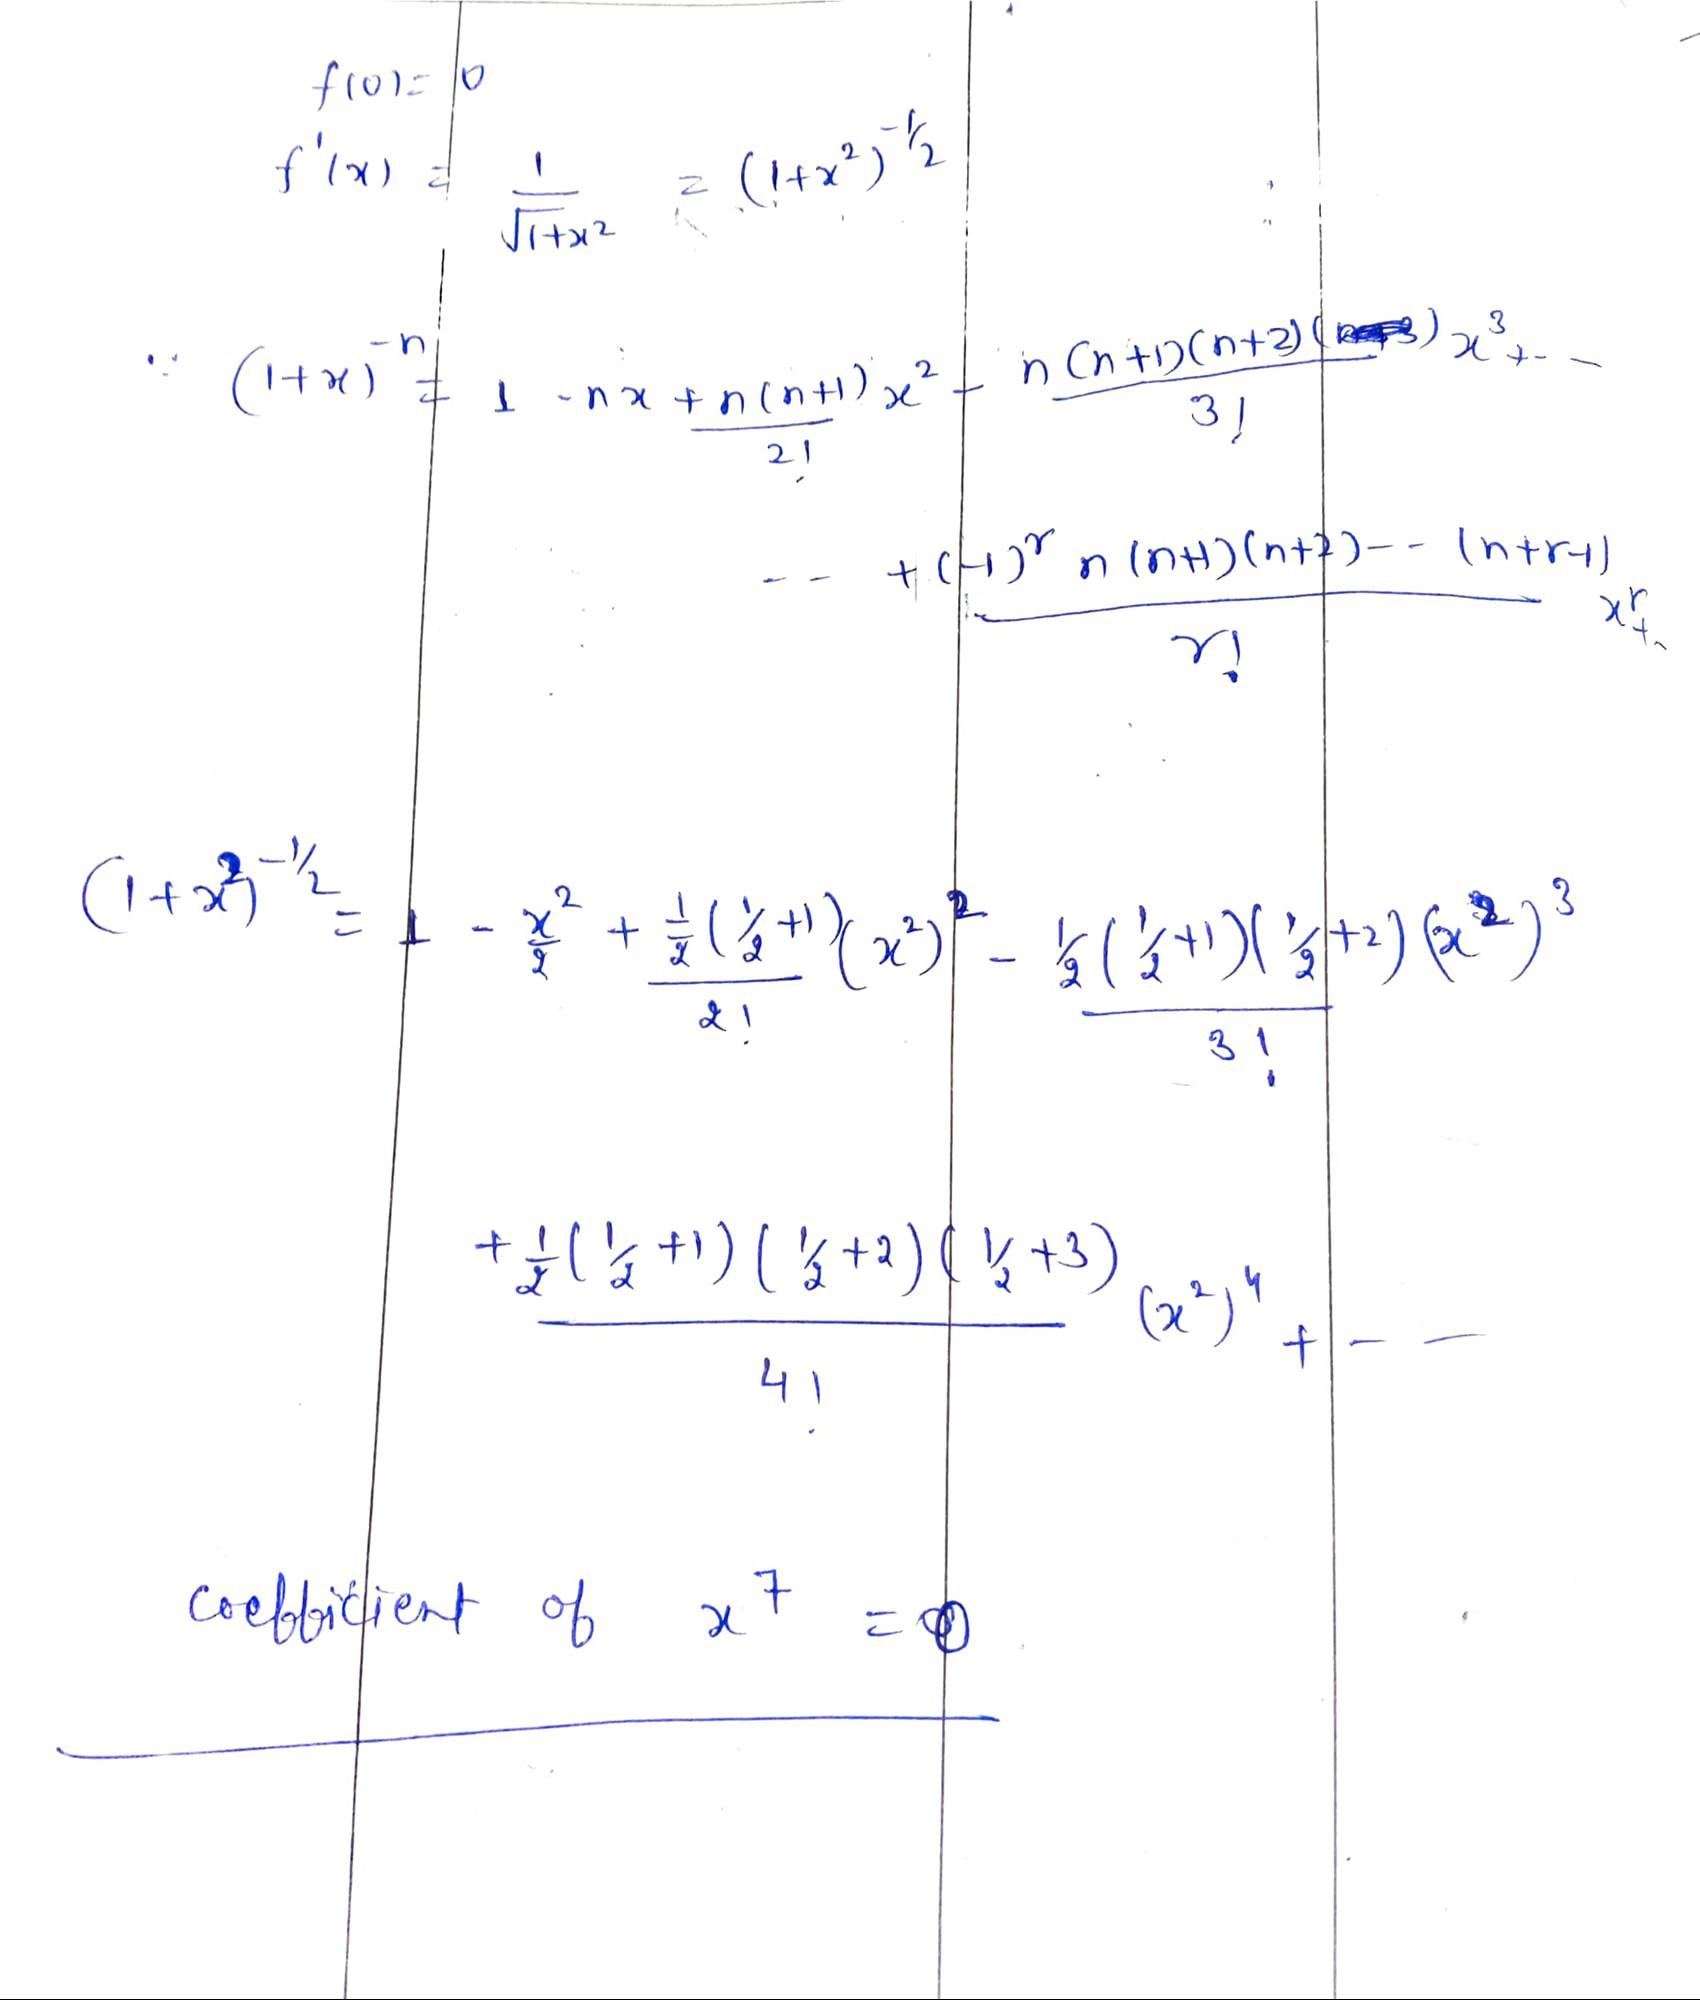 f(0) = 0
f'(x) = 1/√(1+x²) = (1+x²)^(-1/2)
∵ (1+x)^(-n) = 1 - nx + n(n+1)/2! x² - n(n+1)(n+2)( )/3! x³ + - -
- - + (-1)^r n(n+1)(n+2) - - (n+r-1)/r! x^r + -
(1+x²)^(-1/2) = 1 - x²/2 + 1/2(1/2+1)/2! (x²)² - 1/2(1/2+1)(1/2+2)/3! (x²)³
+ 1/2(1/2+1)(1/2+2)(1/2+3)/4! (x²)⁴ + - -
coefficient of x⁷ = 0